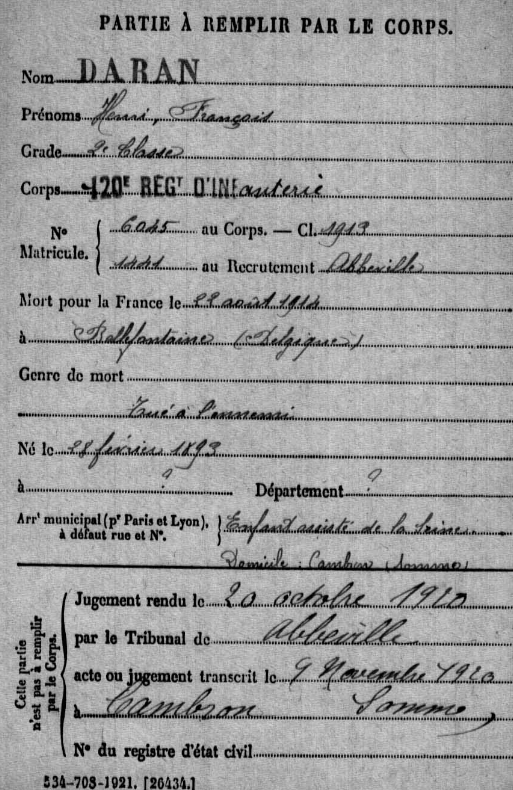 PARTIE À REMPLIR PAR LE CORPS.
Nom DARAN
Prénoms Henri, François
Grade 2e Classe
Corps 120E REGT D'INFanterie
No Matricule. 6045 au Corps. — Cl. 1913
1441 au Recrutement Abbeville
Mort pour la France le 22 août 1914
à Bellefontaine (Belgique)
Genre de mort
Tué à l'ennemi
Né le 28 février 1893
à ? Département ?
Arrt municipal (pr Paris et Lyon), à défaut rue et No. Enfant assisté de la Seine.
Domicile : Cambron (Somme)
Cette partie n'est pas à remplir par le Corps.
Jugement rendu le 20 octobre 1920
par le Tribunal de Abbeville
acte ou jugement transcrit le 9 Novembre 1920
à Cambron Somme
No du registre d'état civil
534-708-1921. [26434.]